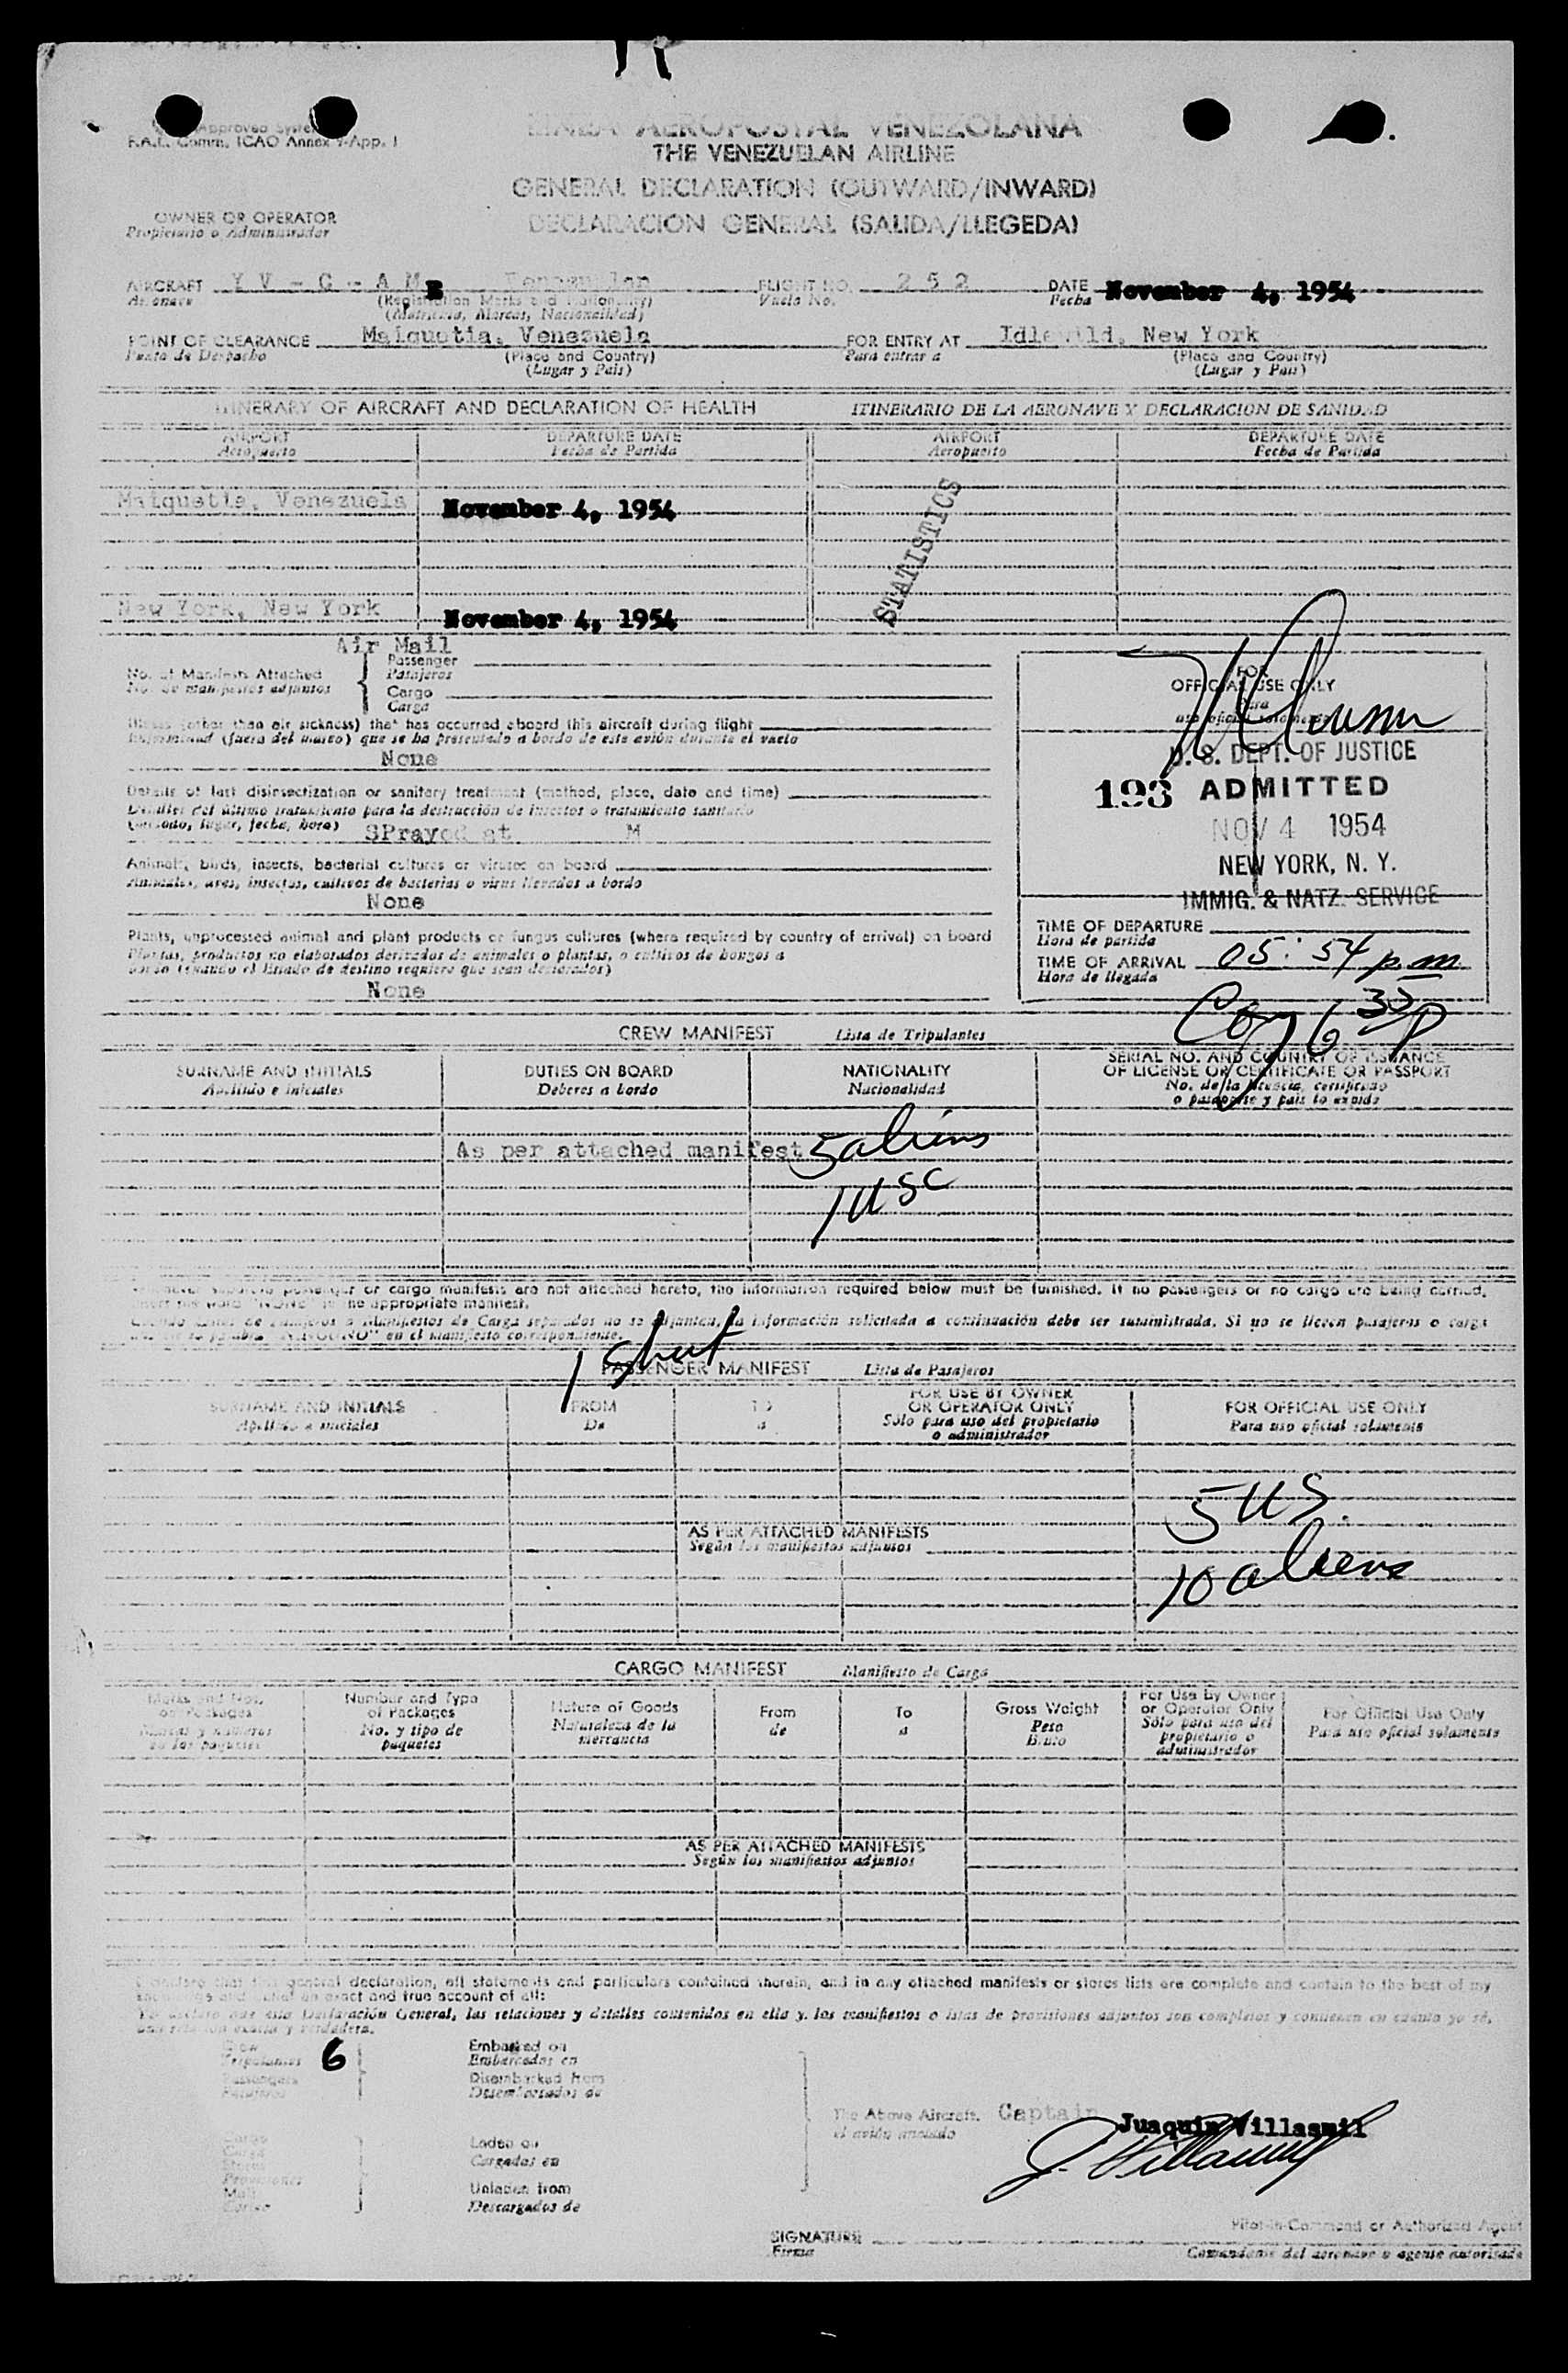 Approved System
F.A.L. Comm. ICAO Annex 9-App. 1
LINEA AEROPOSTAL VENEZOLANA
THE VENEZUELAN AIRLINE
GENERAL DECLARATION (OUTWARD/INWARD)
DECLARACION GENERAL (SALIDA/LLEGEDA)
OWNER OR OPERATOR
Propietario o Administrador
AIRCRAFT Y V - C - A M E Venezuelan FLIGHT NO. 2 5 2 DATE November 4, 1954
Aeronave (Registration Marks and Nationality) Vuelo No. Fecha
(Matricula, Marcas, Nacionalidad)
POINT OF CLEARANCE Maiquetia, Venezuela FOR ENTRY AT Idlewild, New York
Punto de Despacho (Place and Country) Para entrar a (Place and Country)
(Lugar y Pais) (Lugar y Pais)
ITINERARY OF AIRCRAFT AND DECLARATION OF HEALTH ITINERARIO DE LA AERONAVE Y DECLARACION DE SANIDAD
AIRPORT DEPARTURE DATE AIRPORT DEPARTURE DATE
Aeropuerto Fecha de Partida Aeropuerto Fecha de Partida
Maiquetia, Venezuela November 4, 1954
STATISTICS
New York, New York November 4, 1954
Air Mail
No. of Manifests Attached Passenger
No. de manifiestos adjuntos Pasajeros
Cargo
Carga
Illness (other than air sickness) that has occurred aboard this aircraft during flight
Enfermedad (fuera del mareo) que se ha presentado a bordo de este avión durante el vuelo
None
Details of last disinsectization or sanitary treatment (method, place, date and time)
Detalles del último tratamiento para la destrucción de insectos o tratamiento sanitario
(método, lugar, fecha, hora) SPrayed at M
Animals, birds, insects, bacterial cultures or viruses on board
Animales, aves, insectos, cultivos de bacterias o virus llevados a bordo
None
Plants, unprocessed animal and plant products or fungus cultures (where required by country of arrival) on board
Plantas, productos no elaborados derivados de animales o plantas, o cultivos de hongos a
bordo (cuando el listado de destino requiere que sean declarados)
None
FOR
OFFICIAL USE ONLY
Para
uso oficial solamente
U. S. DEPT. OF JUSTICE
193 ADMITTED
NOV 4 1954
NEW YORK, N. Y.
IMMIG. & NATZ. SERVICE
TIME OF DEPARTURE
Hora de partida
TIME OF ARRIVAL 05:54 p.m.
Hora de llegada
CREW MANIFEST Lista de Tripulantes
SURNAME AND INITIALS DUTIES ON BOARD NATIONALITY SERIAL NO. AND COUNTRY OF ISSUANCE
OF LICENSE OR CERTIFICATE OR PASSPORT
Apellido e iniciales Deberes a bordo Nacionalidad No. de la licencia, certificado
o pasaporte y pais lo expide
As per attached manifest 5 aliens
1 USC
Whenever separate passenger or cargo manifests are not attached hereto, the information required below must be furnished. If no passengers or no cargo are being carried,
insert the word "NONE" in the appropriate manifest.
Cuando Listas de Pasajeros o Manifiestos de Carga separados no se adjuntan, la información solicitada a continuación debe ser suministrada. Si no se llevan pasajeros o carga
"NINGUNO" en el manifiesto correspondiente.
1 sheet
PASSENGER MANIFEST Lista de Pasajeros
SURNAME AND INITIALS FROM TO FOR USE BY OWNER OR OPERATOR ONLY FOR OFFICIAL USE ONLY
Apellido e iniciales De a Sólo para uso del propietario o administrador Para uso oficial solamente
5 US.
AS PER ATTACHED MANIFESTS
Según los manifiestos adjuntos
10 aliens
CARGO MANIFEST Manifiesto de Carga
Marks and Nos. on Packages Number and Type of Packages Nature of Goods From To Gross Weight For Use By Owner or Operator Only For Official Use Only
Marcas y números en los paquetes No. y tipo de paquetes Naturaleza de la mercancia de a Peso Bruto Sólo para uso del propietario o administrador Para uso oficial solamente
AS PER ATTACHED MANIFESTS
Según los manifiestos adjuntos
I declare that this general declaration, all statements and particulars contained therein, and in any attached manifests or stores lists are complete and contain to the best of my
knowledge and belief an exact and true account of all:
Yo declaro que esta Declaración General, las relaciones y detalles contenidos en ella y los manifiestos o listas de provisiones adjuntos son completos y contienen en cuánto yo sé,
una relación exacta y verdadera.
Crew Embarked on
Tripulantes 6 Embarcados en
Passengers Disembarked from
Pasajeros Desembarcados de
The Above Aircraft. Captain Juaquin Villasmil
el avión anotado J. Villasmil
Cargo Laden on
Carga Cargados en
Stores
Provisiones
Mail Unladen from
Correo Descargados de
Pilot-in-Command or Authorized Agent
SIGNATURE
Firma Comandante del aeronave o agente autorizado